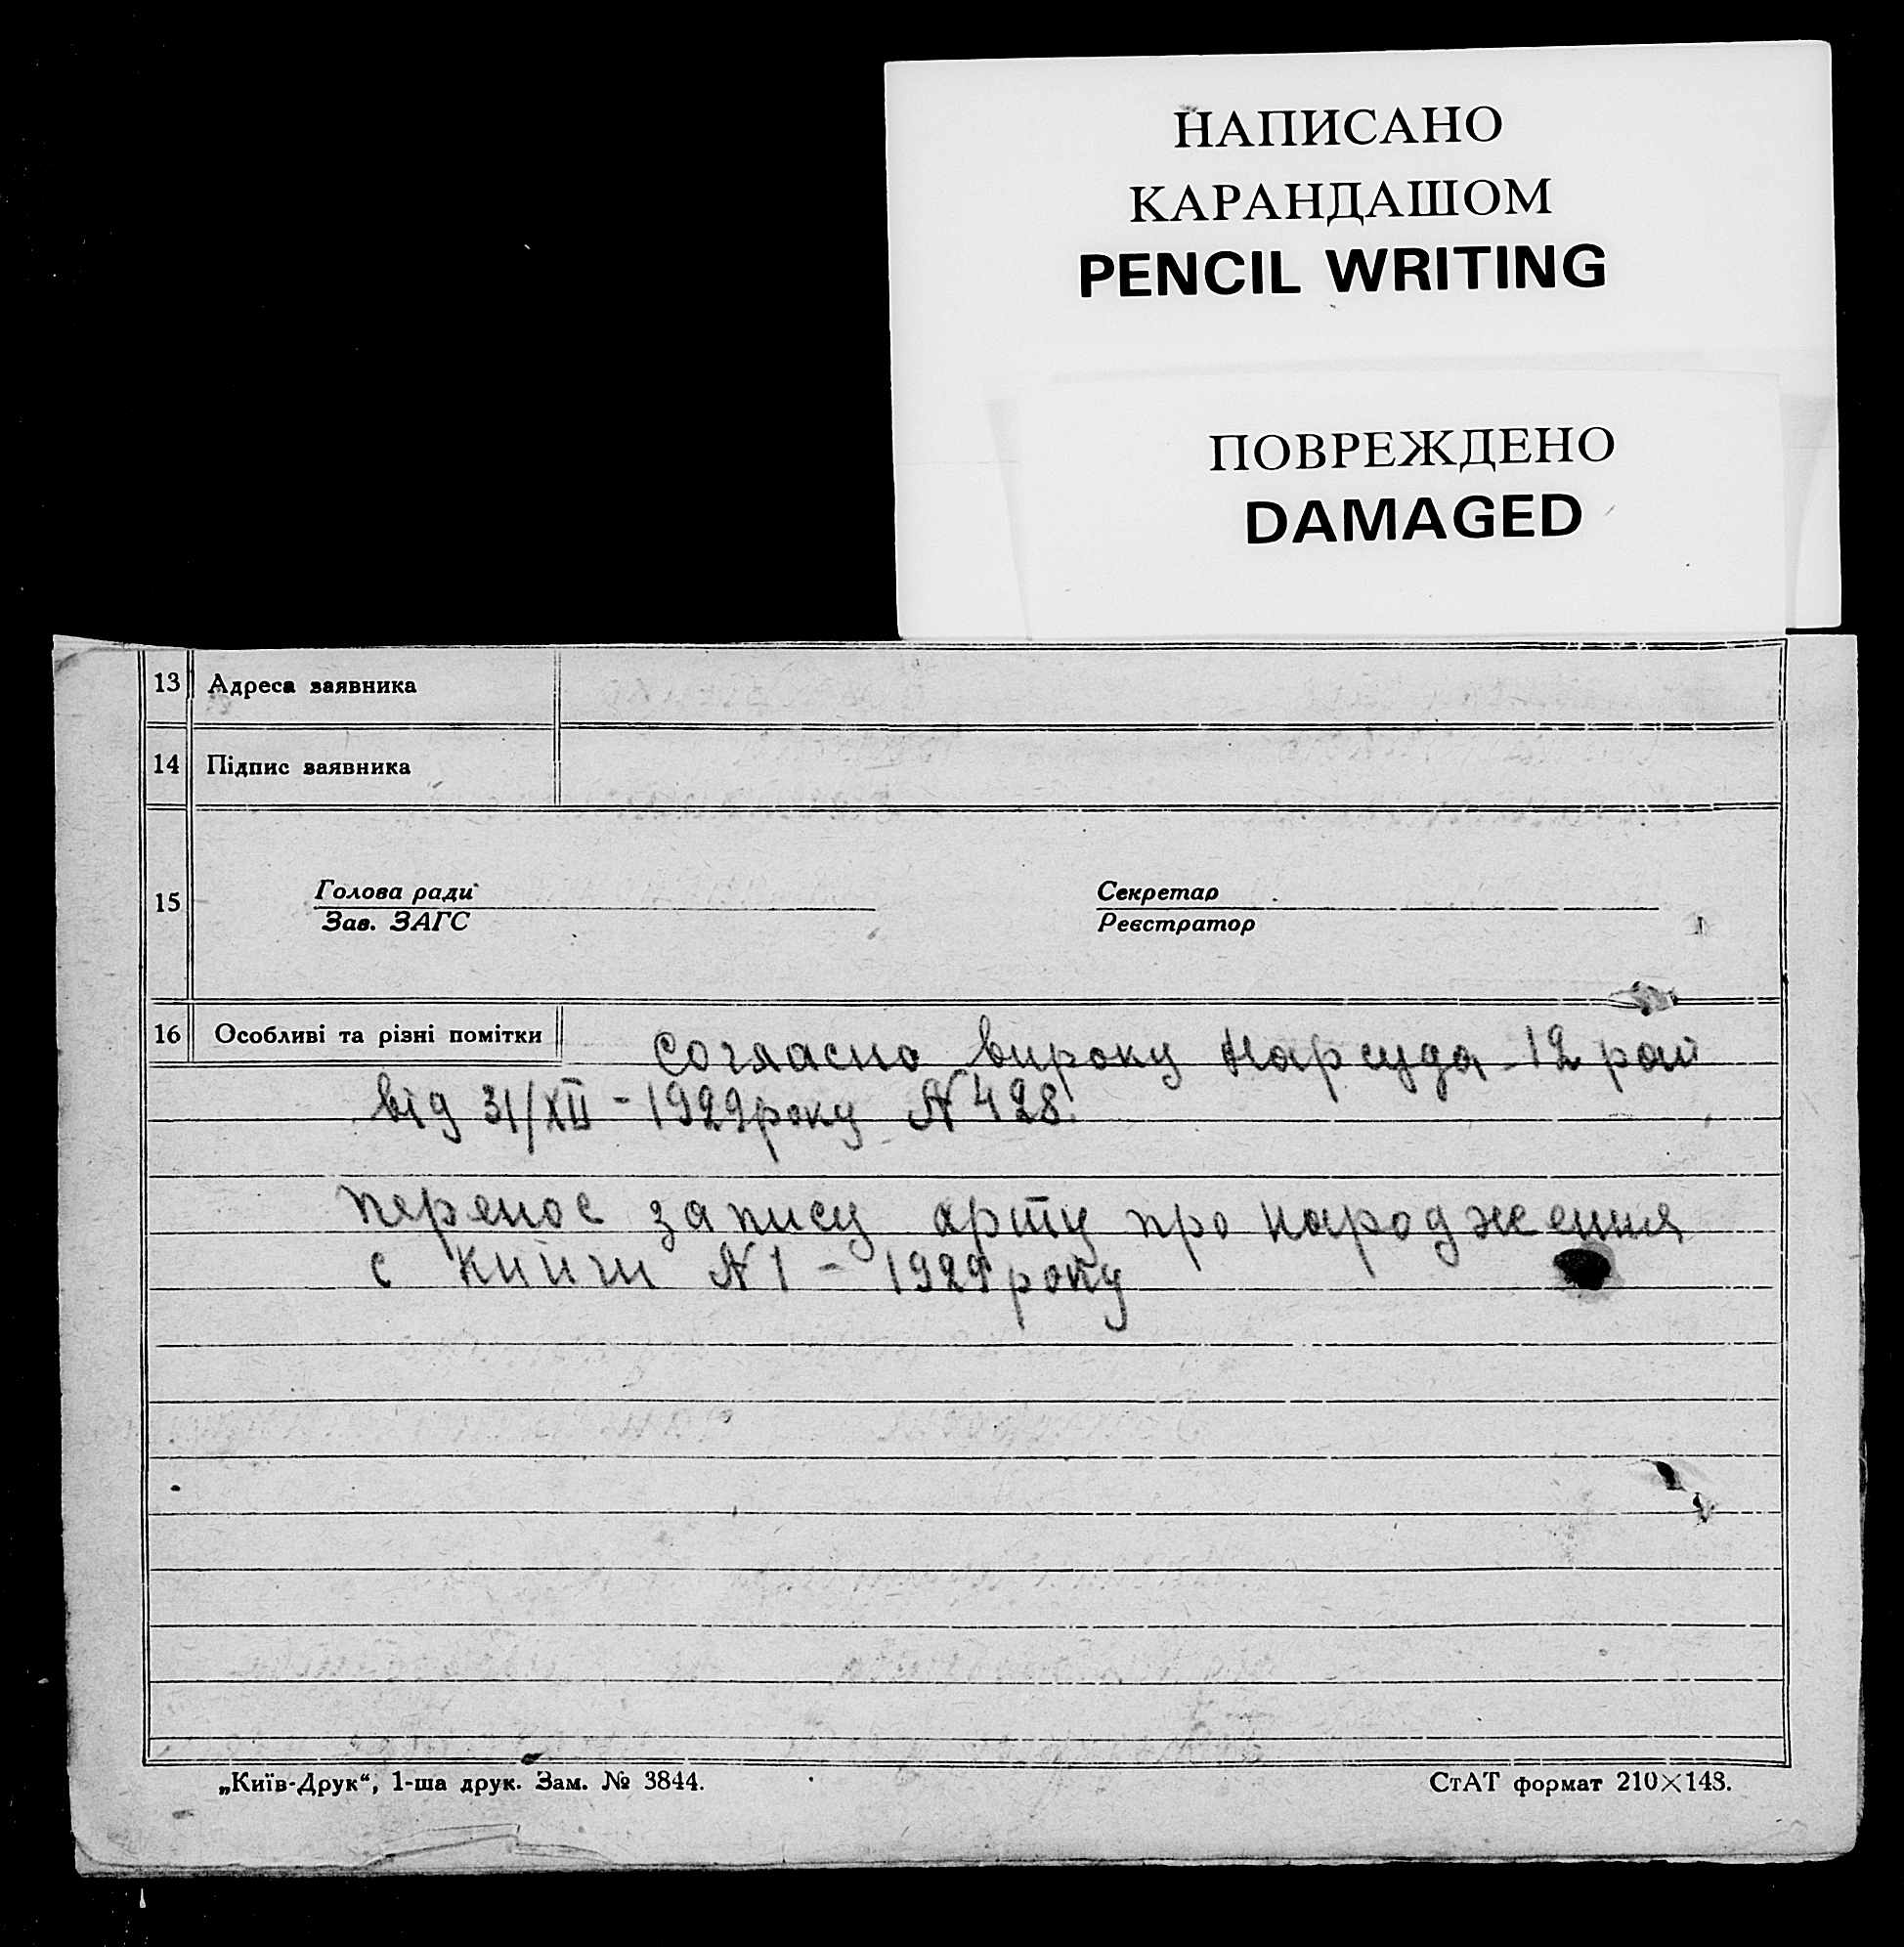 НАПИСАНО
КАРАНДАШОМ
PENCIL WRITING
ПОВРЕЖДЕНО
DAMAGED
13 Адреса заявника
14 Підпис заявника
15 Голова ради Секретар
Зав. ЗАГС Реєстратор
16 Особливі та різні помітки Согласно вироку Нарсуда 12 рай
від 31/XII - 1929 року N 428
перенос запису про народження
с книги N 1 - 1929 року
„Київ-Друк“, 1-ша друк. Зам. № 3844. СтАТ формат 210×148.